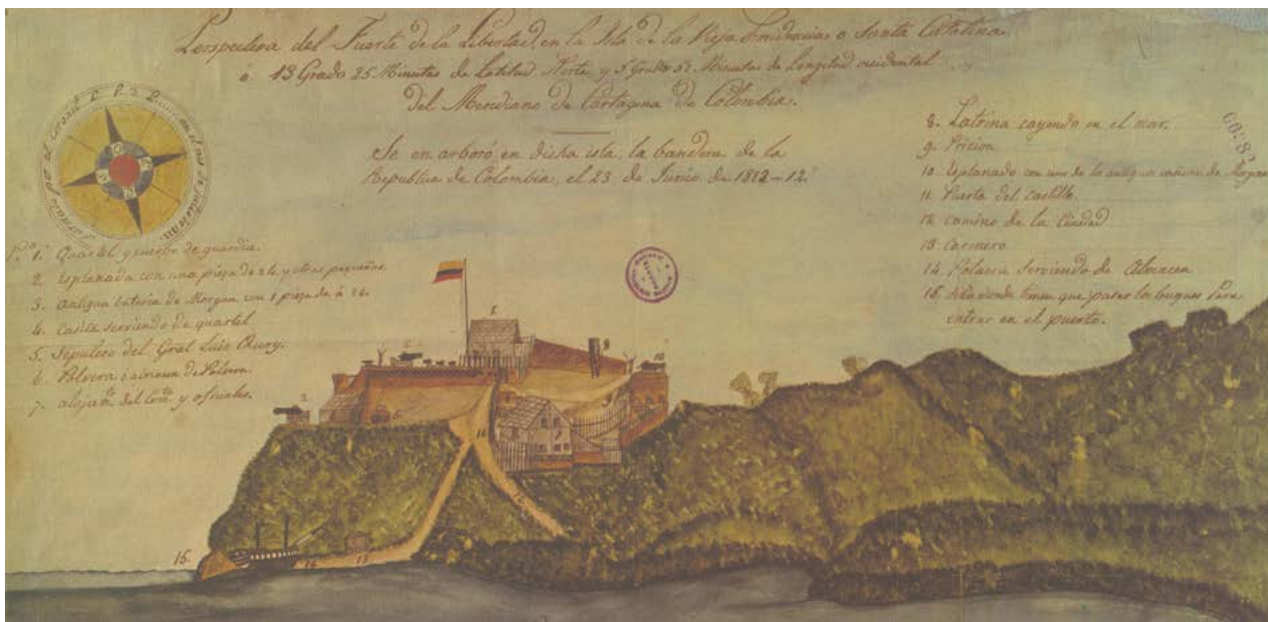 Perspectiva del Fuerte de la Libertad, en la Isla de la Vieja Providencia o Santa Catalina
á 13 Grado 25 Minutas de Latitud Norte, y 5 Grado 52 Minutas de Longitud occidental
Del Meridiano de Cartagena de Colombia.
Se en arboró en dicha isla, la bandera de la
Republica de Colombia, el 23 de Junio de 1812-12.
1. Quartel y cuerpo de guardia.
2. Esplanada con una pieza de 24. y otras pequeñas
3. Antigua bateria de Morgan con 1 pieza de à 24.
4. Casita serviendo de quartel
5. Sepulcro del Gral Luis Aury.
6. Polvera ó almacen de Polvora
7. alojam.to del Com.te y oficiales.
8. Latrina cayendo en el mar.
9. Pricion
10. Esplanado con uno de lo antiguo cañone de Morgan
11. Puerta del castillo.
12. camino de la Ciudad
13. Carenero
14. Polacra serviendo de Almacen
15. donde tienen que pasar los buques Para
entrar en el puerto.